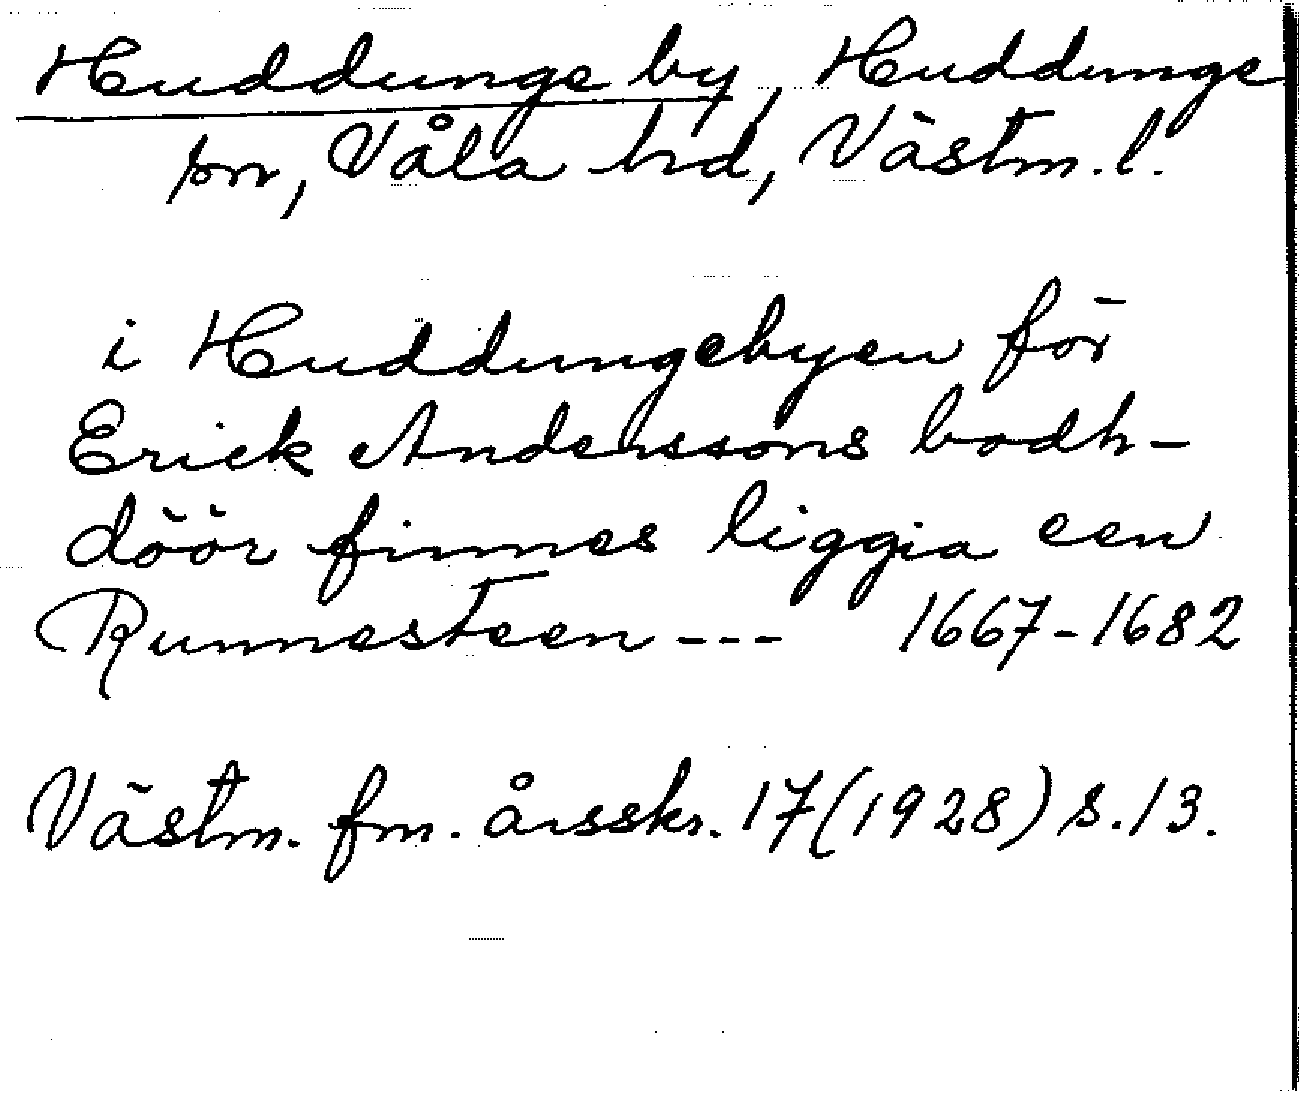 Huddunge by, Huddunge
sn, Våla hd, Västm. l.
i Huddungebyen för
Erick Anderssons bodh-
döör finnes liggia een
Runnesteen --- 1667-1682
Västm. fm. årsskr. 17 (1928) s. 13.